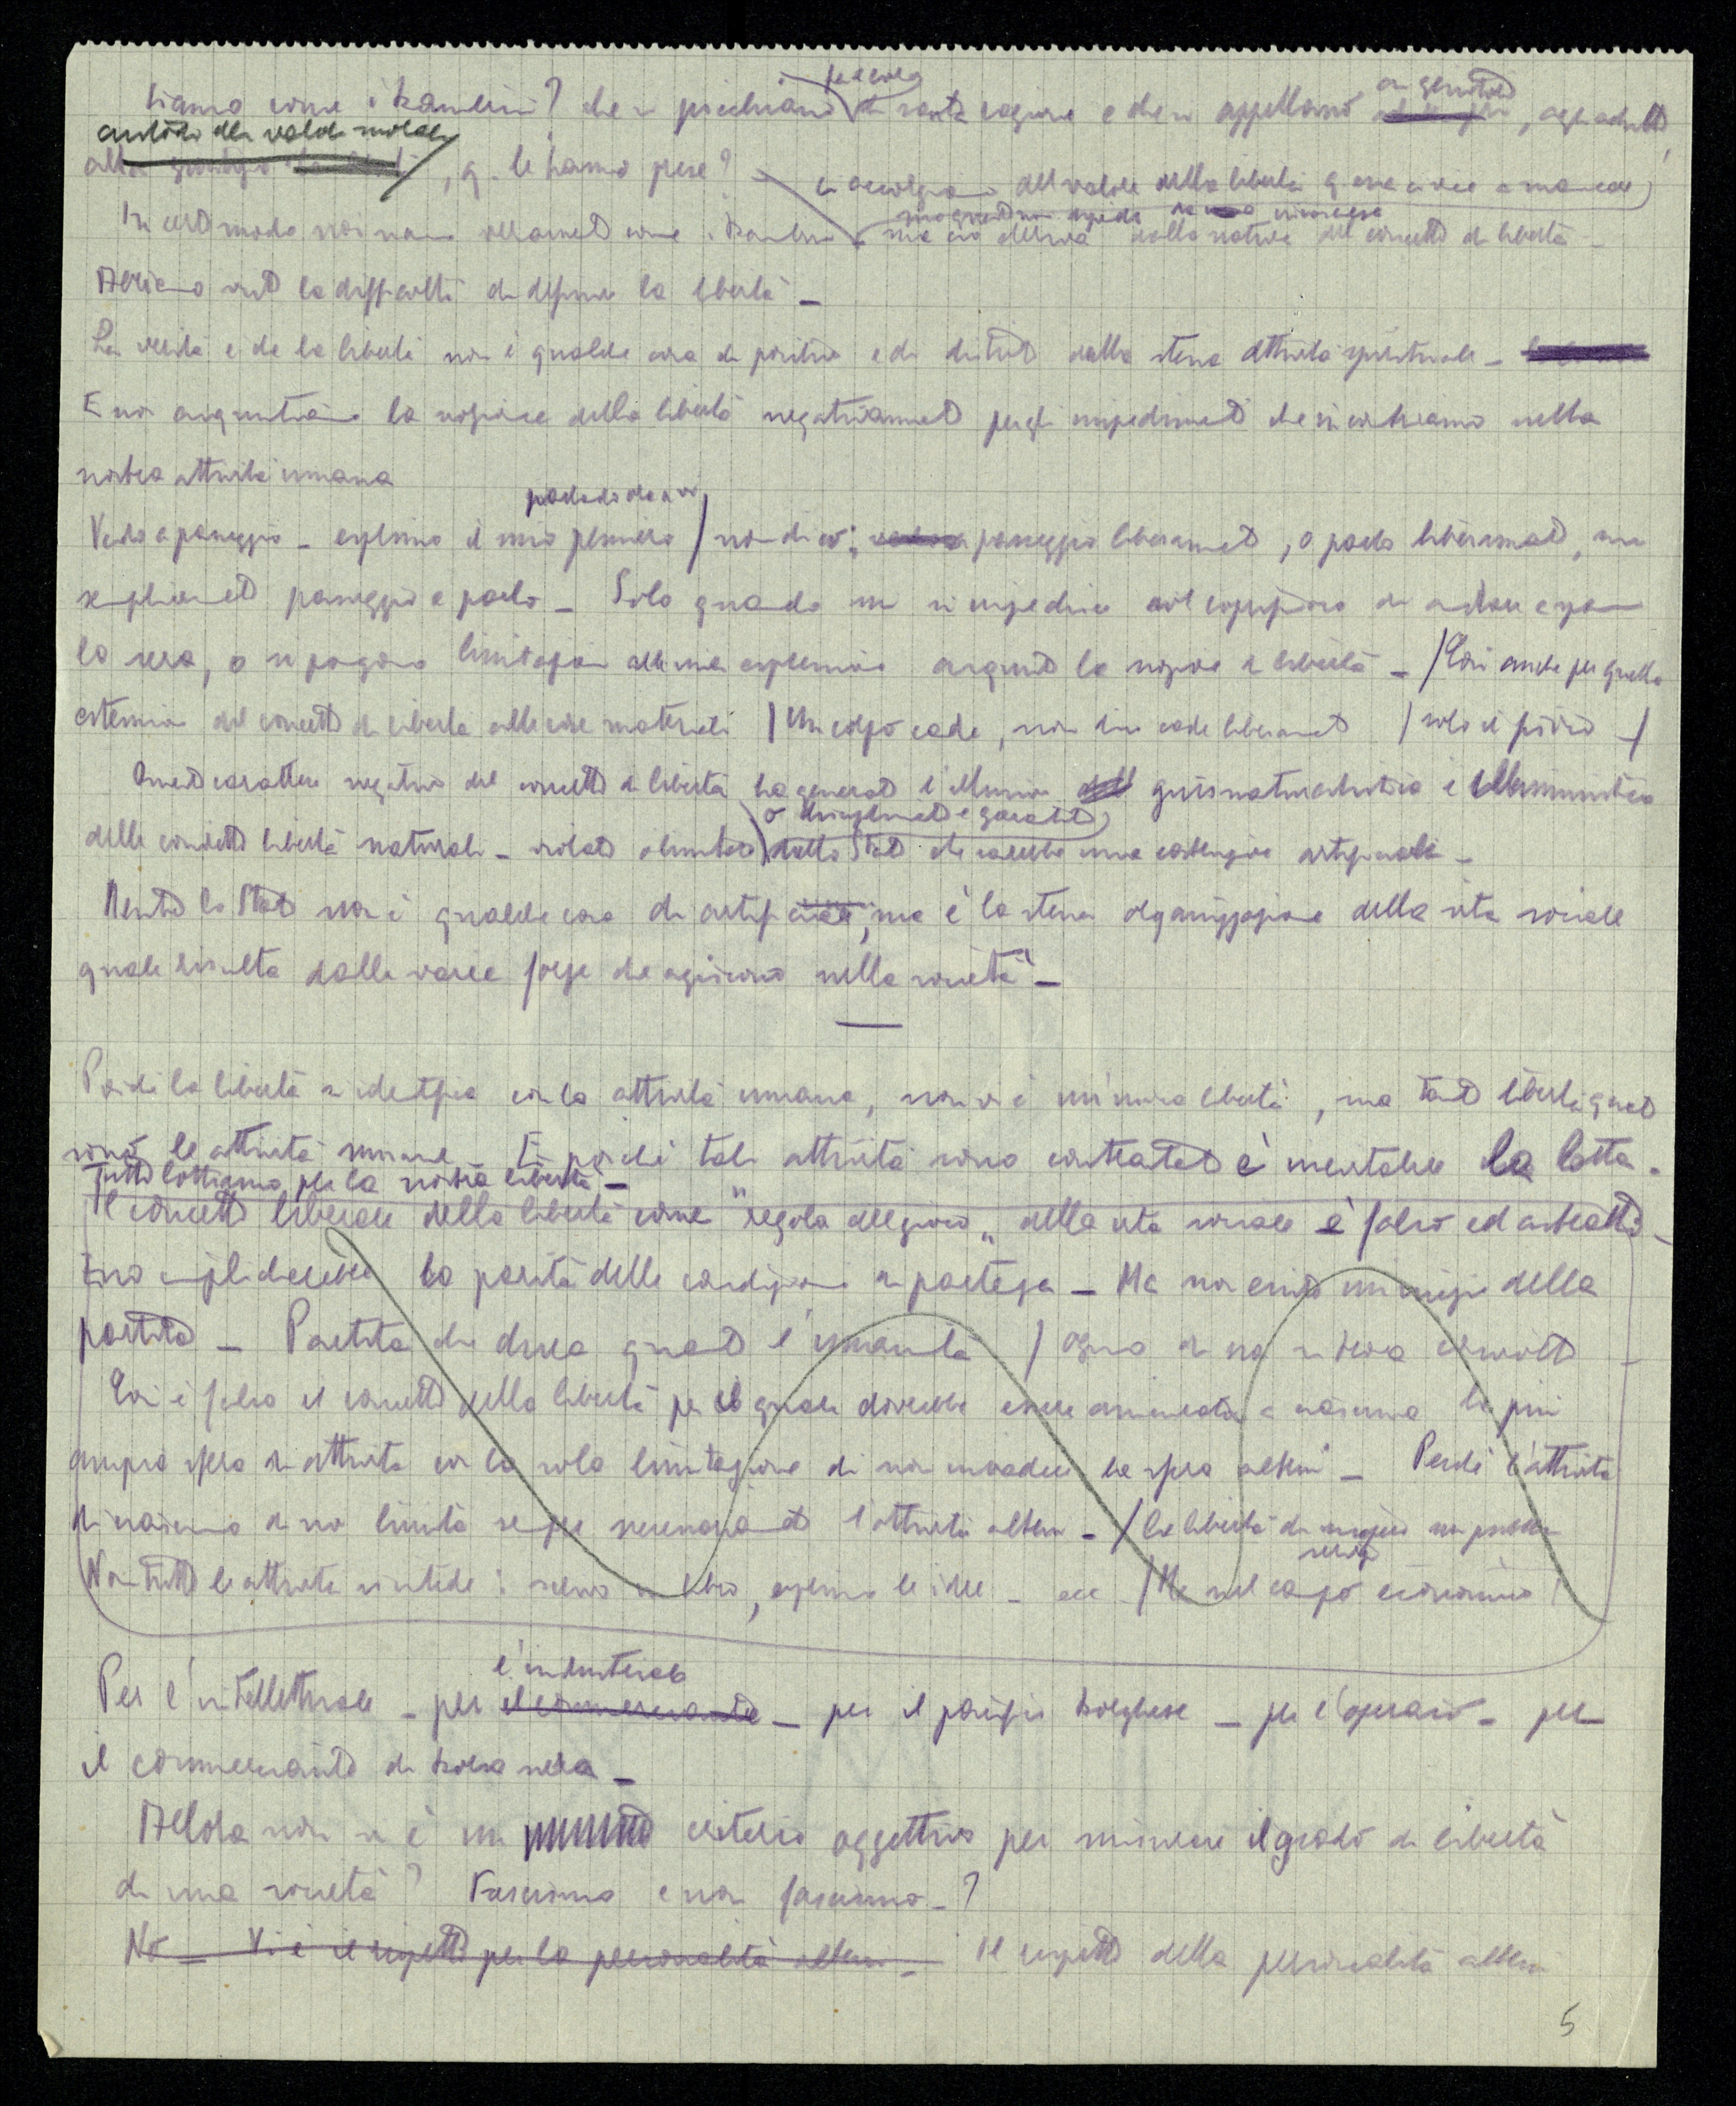 siamo come i bambini? che si picchiano di santa ragione e che si appellano ai genitori, agli adulti,
, q. le hanno prese?
ci accorgiamo del valore della libertà q. essa ci viene a mancare
In certo modo noi siamo veramente come i bambini ma ciò deriva dalla natura del concetto di libertà _
Abbiamo visto la difficoltà di definire la libertà _
La verità è che la libertà non è qualche cosa di positivo e di distinto dalla stessa attività spirituale _
E noi acquistiamo la nozione della libertà negativamente per gli impedimenti che incontriamo nella
nostra attività umana
parlando
Vado a passeggio _ esprimo il mio pensiero / non dico: passeggio liberamente, o parlo liberamente, ma
semplicemente passeggio e parlo _ Solo quando mi si impedisce col coprifuoco di andare a spasso
la sera, o si pongono limitazioni alla mia espressione acquisto la nozione di libertà _ / Così anche per quella
estensione del concetto di libertà alle cose materiali / Un corpo cade, non dico cade liberamente / solo il fisico _/
Questo carattere negativo del concetto di libertà ha generato l'illusione giusnaturalistica e illuministica
o riconosciute e garantite
delle cosiddette libertà naturali _ violate o limitate dallo Stato che sarebbe una costruzione artificiale _
Mentre lo Stato non è qualche cosa di artificiale, ma è la stessa organizzazione della vita sociale
quale risulta dalle varie forze che agiscono nella società _
Poiché la libertà si identifica con la attività umana, non vi è un'unica libertà, ma tante libertà quante
sono le attività umane _ E poiché tali attività sono contrastate è inevitabile la lotta.
Tutti lottiamo per la nostra libertà _
Il concetto liberale della libertà come "regola del gioco" della vita sociale è falso ed astratto _
Esso implicherebbe la parità delle condizioni in partenza _ Ma non esiste un inizio della
partita _ Partita che dura quanto l'umanità / Ognuno di noi si trova coinvolto _
Così è falso il concetto della libertà per il quale dovrebbe essere assicurata a ciascuno la più
ampia sfera di attività con la sola limitazione di non invadere la sfera altrui _ Perché l'attività
di ciascuno di noi limita sempre necessariamente l'attività altrui _ / La libertà di
Non tutte le attività s'intende: scrivo un libro, esprimo le idee _ ecc _ / Ma nel campo economico
l'industriale
Per l'intellettuale _ per il commerciante _ per il pacifico borghese _ per l'operaio _ per
il commerciante di borsa nera _
Allora non vi è un criterio oggettivo per misurare il grado di libertà
di una società? Fascismo e non fascismo _?
No _ Vi è il rispetto per la personalità altrui _ Il rispetto della personalità altrui
5